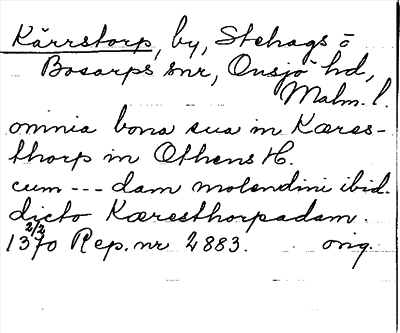 Kärrstorp, by, Stehags o
Bosarps snr, Onsjö hd,
Malm. l.
omnia bona sua in Kæres-
thorp in Othens H.
cum --- dam molendini ibid.
dicto Kæresthorpadam.
1370 2/2 Rep. nr 2883. orig.